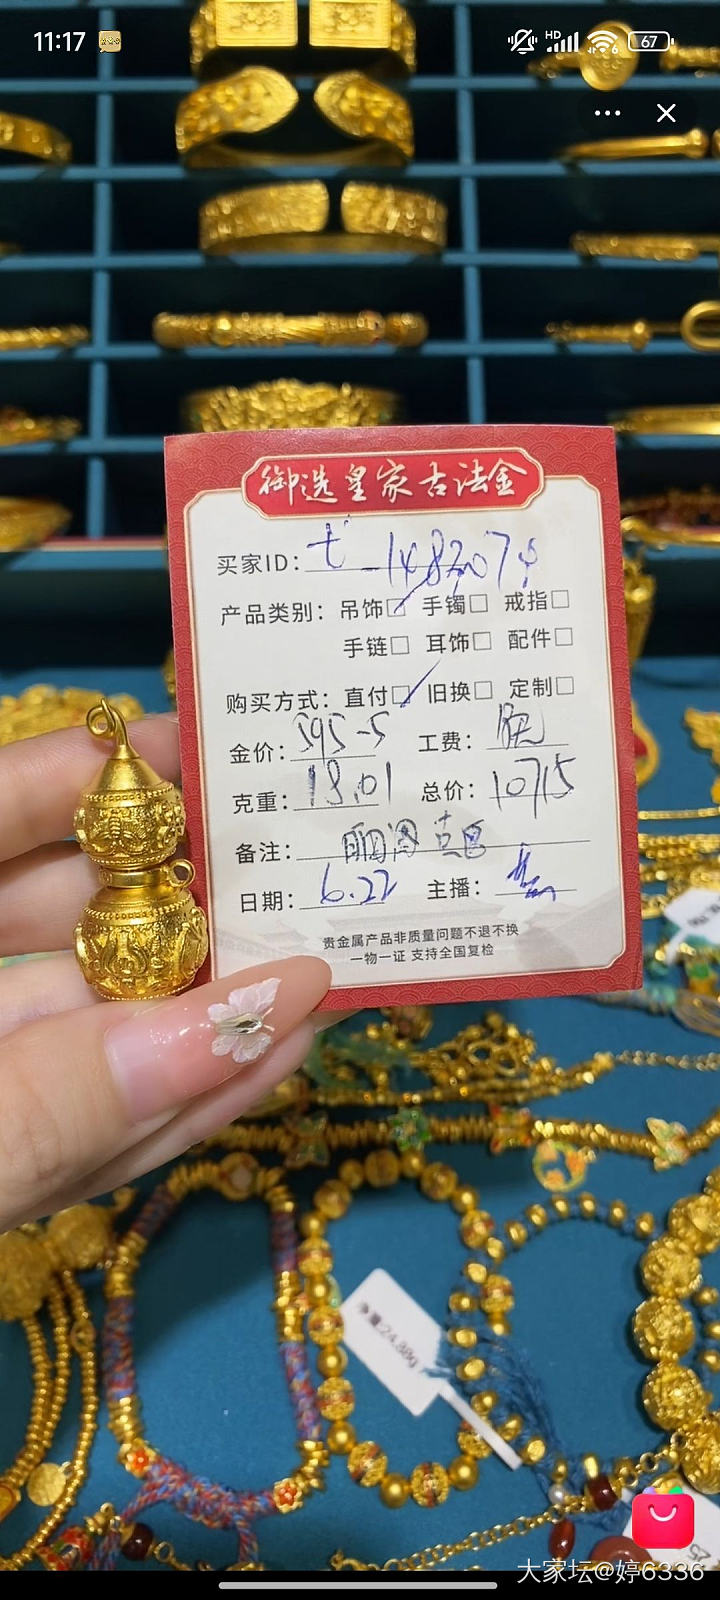 11:17
HD 6 67
御选皇家古法金
买家ID: 七 -1482074
产品类别: 吊饰 手镯 戒指
手链 耳饰 配件
购买方式: 直付 旧换 定制
金价: 595-5 工费:
克重: 18.01 总价: 10715
备注:
日期: 6.22 主播:
贵金属产品非质量问题不退不换
一物一证 支持全国复检
净重:24.88g
大家坛@婷6336